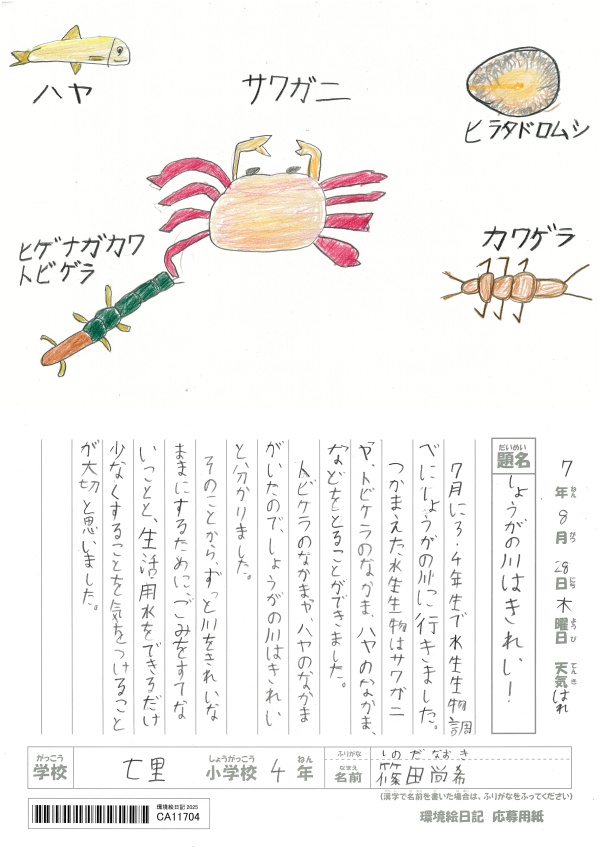 ハヤ
サワガニ
ヒラタドロムシ
ヒゲナガカワ
トビゲラ
カワゲラ
7年ねん8月がつ28日にち木曜日ようび 天気てんきはれ
だいめい
題名
しょうがの川はきれい!
7月に3・4年生で水生生物調
べにしょうがの川に行きました。
つかまえた水生生物はサワガニ
や、トビケラのなかま、ハヤのなかま、
などをとることができました。
トビケラのなかまや、ハヤのなかま
がいたので、しょうがの川はきれい
と分かりました。
そのことから、ずっと川をきれいな
ままにするために、ごみをすてな
いことと、生活用水をできるだけ
少なくすることを気をつけること
が大切と思いました。
がっこう
学校
七里
しょうがっこう
小学校
4
ねん
年
ふりがな
しのだなおき
なまえ
名前
篠田尚希
(漢字で名前を書いた場合は、ふりがなをふってください)
環境絵日記 2025
CA11704
環境絵日記 応募用紙